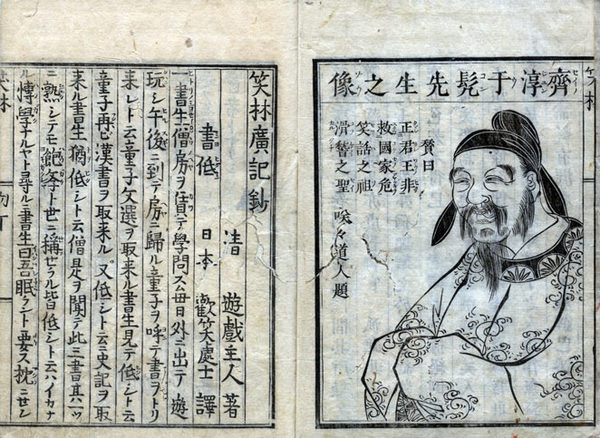 齊淳于髡先生之像
賛曰
正君王非
救國家危
笑話之祖
滑稽之聖
唉々道人題
笑林廣記鈔
清 遊戯主人 著
書低 日本 歡笑處士 譯
一書生僧房ヲ借テ學問ス毎日外ニ出テ遊
玩シ午後ニ到テ房ニ歸ル童子ヲ呼テ書ヲトリ
来レト云童子文選ヲ取来ル書生見テ低シト云
童子再ヒ漢書ヲ取来ル又低シト云史記ヲ取
来ル書生猶低シト云僧是ヲ聞テ此三書其ハ一ツ
ニ熟シテモ飽學ト世ニ稱セラル皆低シト云ハイカナ
ル博學ナルヤト尋ルニ書生曰吾眠ラント要ス枕ニセン
笑林